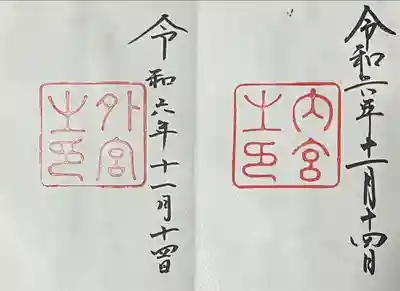 令和六年十一月十四日
内宮
之印
令和六年十一月十四日
外宮
之印